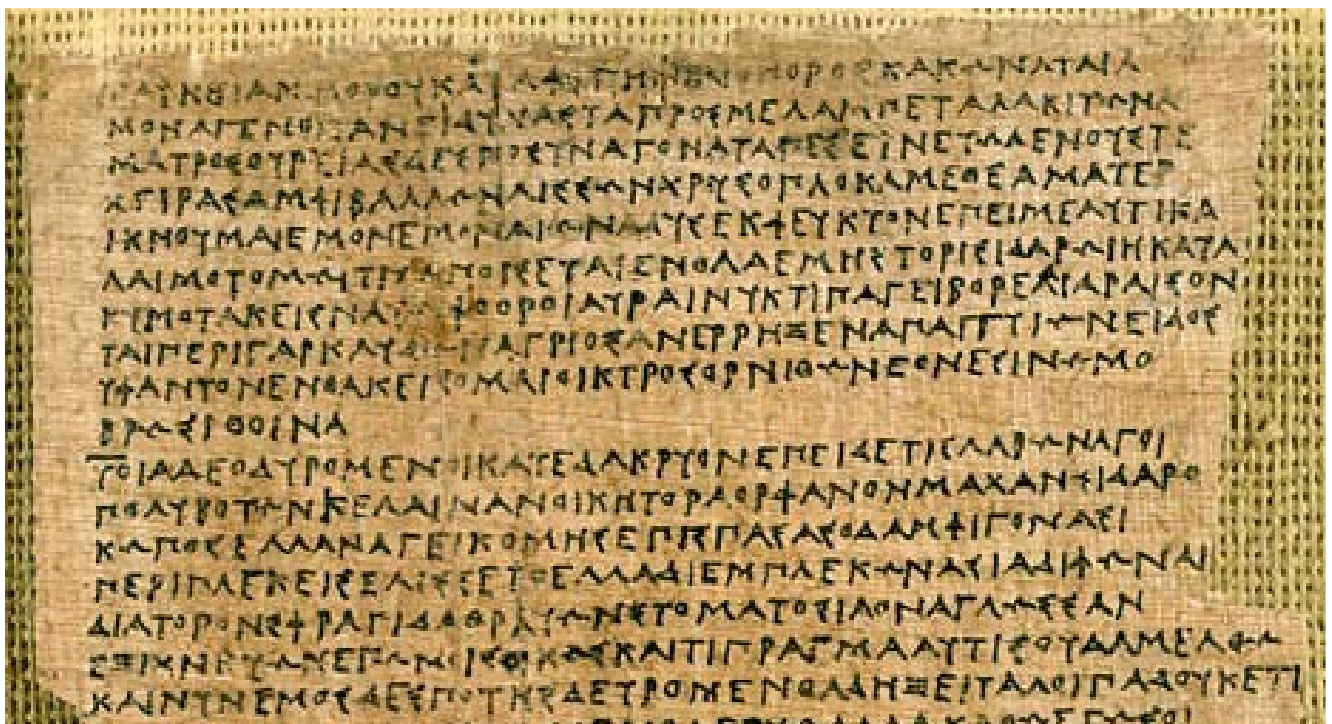 ΜΑΤΡΟΣΟΥΡΕΙΑΣΔΕΣΠΟΣΥΝΑΓΟΝΑΤΑΠΕΣΕΙΝΕΥΩΛΕΝΟΥΣΤΕ
ΧΕΙΡΑΣΑΜΦΙΒΑΛΛΩΝΛΙΣΣΩΝΧΡΥΣΟΠΛΟΚΑΜΕΘΕΑΜΑΤΕΡ
ΙΚΝΟΥΜΑΙΕΜΟΝΕΜΟΝΑΙΩΝΑΔΥΣΕΚΦΕΥΚΤΟΝΕΠΕΙΜΕΑΥΤΙΚΑ
ΛΑΙΜΟΤΟΜΩΙΤΙΣΑΠΟΙΣΕΤΑΙΕΝΘΑΔΕΜΗΣΤΟΡΙΣΙΔΑΡΩΙΗΚΑΤΑ
ΚΥΜΟΤΑΚΕΙΣΝΑΥΣΙΦΘΟΡΟΙΑΥΡΑΙΝΥΚΤΙΠΑΓΕΙΒΟΡΕΑΙΔΙΑΡΑΙΣΟΝ
ΤΑΙΠΕΡΙΓΑΡΚΛΥΔΩΝΑΓΡΙΟΣΑΝΕΡΡΗΞΕΝΑΠΑΝΓΥΙΩΝΕΙΔΟΣ
ΥΦΑΝΤΟΝΕΝΘΑΚΕΙΣΟΜΑΙΟΙΚΤΡΟΣΟΡΝΙΘΩΝΕΘΝΕΣΙΝΩΜΟ
ΒΡΩΣΙΘΟΙΝΑ
ΤΟΙΑΔΕΟΔΥΡΟΜΕΝΟΙΚΑΤΕΔΑΚΡΥΟΝΕΠΕΙΔΕΤΙΣΛΑΒΩΝΑΓΟΙ
ΠΟΛΥΒΟΤΩΝΚΕΛΑΙΝΑΝΟΙΚΗΤΟΡΑΟΡΦΑΝΟΝΜΑΧΑΝΣΙΔΑΡΟ
ΚΩΠΟΣΕΛΛΑΝΑΓΕΙΚΟΜΗΣΕΠΙΣΠΑΣΑΣΟΔΑΜΦΙΓΟΝΑΣΙ
ΠΕΡΙΠΛΕΚΕΙΣΕΛΙΣΣΕΤΟΕΛΛΑΔΙΕΜΠΛΕΚΩΝΑΣΙΑΔΙΦΩΝΑΙ
ΔΙΑΤΟΡΟΝΣΦΡΑΓΙΔΑΘΡΑΥΩΝΣΤΟΜΑΤΟΣΙΑΟΝΑΓΛΩΣΣΑΝ
ΕΞΙΧΝΕΥΩΝΕΓΩΜΟΙΣΟΙΚΩΣΚΑΙΤΙΠΡΑΓΜΑΑΥΤΙΣΟΥΔΑΜΕΛΘΩ
ΚΑΙΝΥΝΕΜΟΣΔΕΣΠΟΤΗΣΔΕΥΡΟΜΕΝΘΑΔΗΞΕΙΤΑΛΟΙΠΑΔΟΥΚΕΤΙ